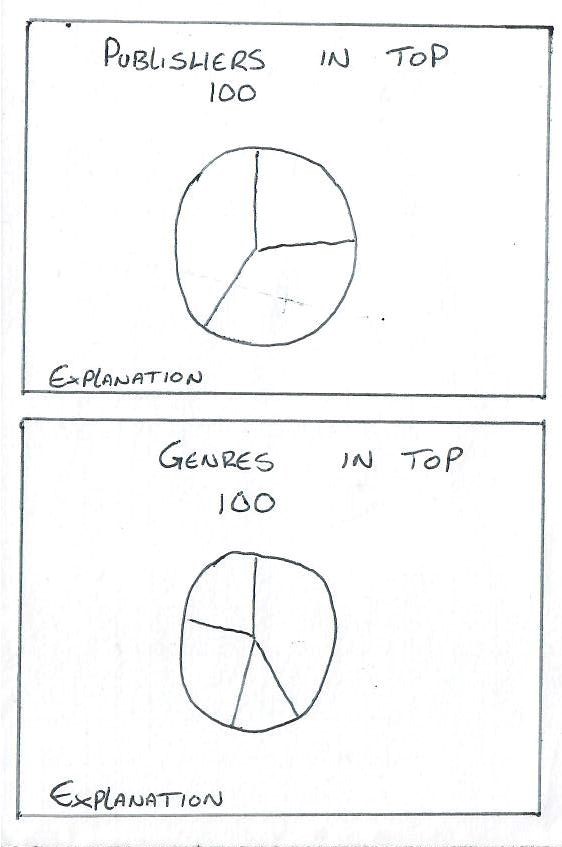 PUBLISHERS IN TOP
100
EXPLANATION
GENRES IN TOP
100
EXPLANATION